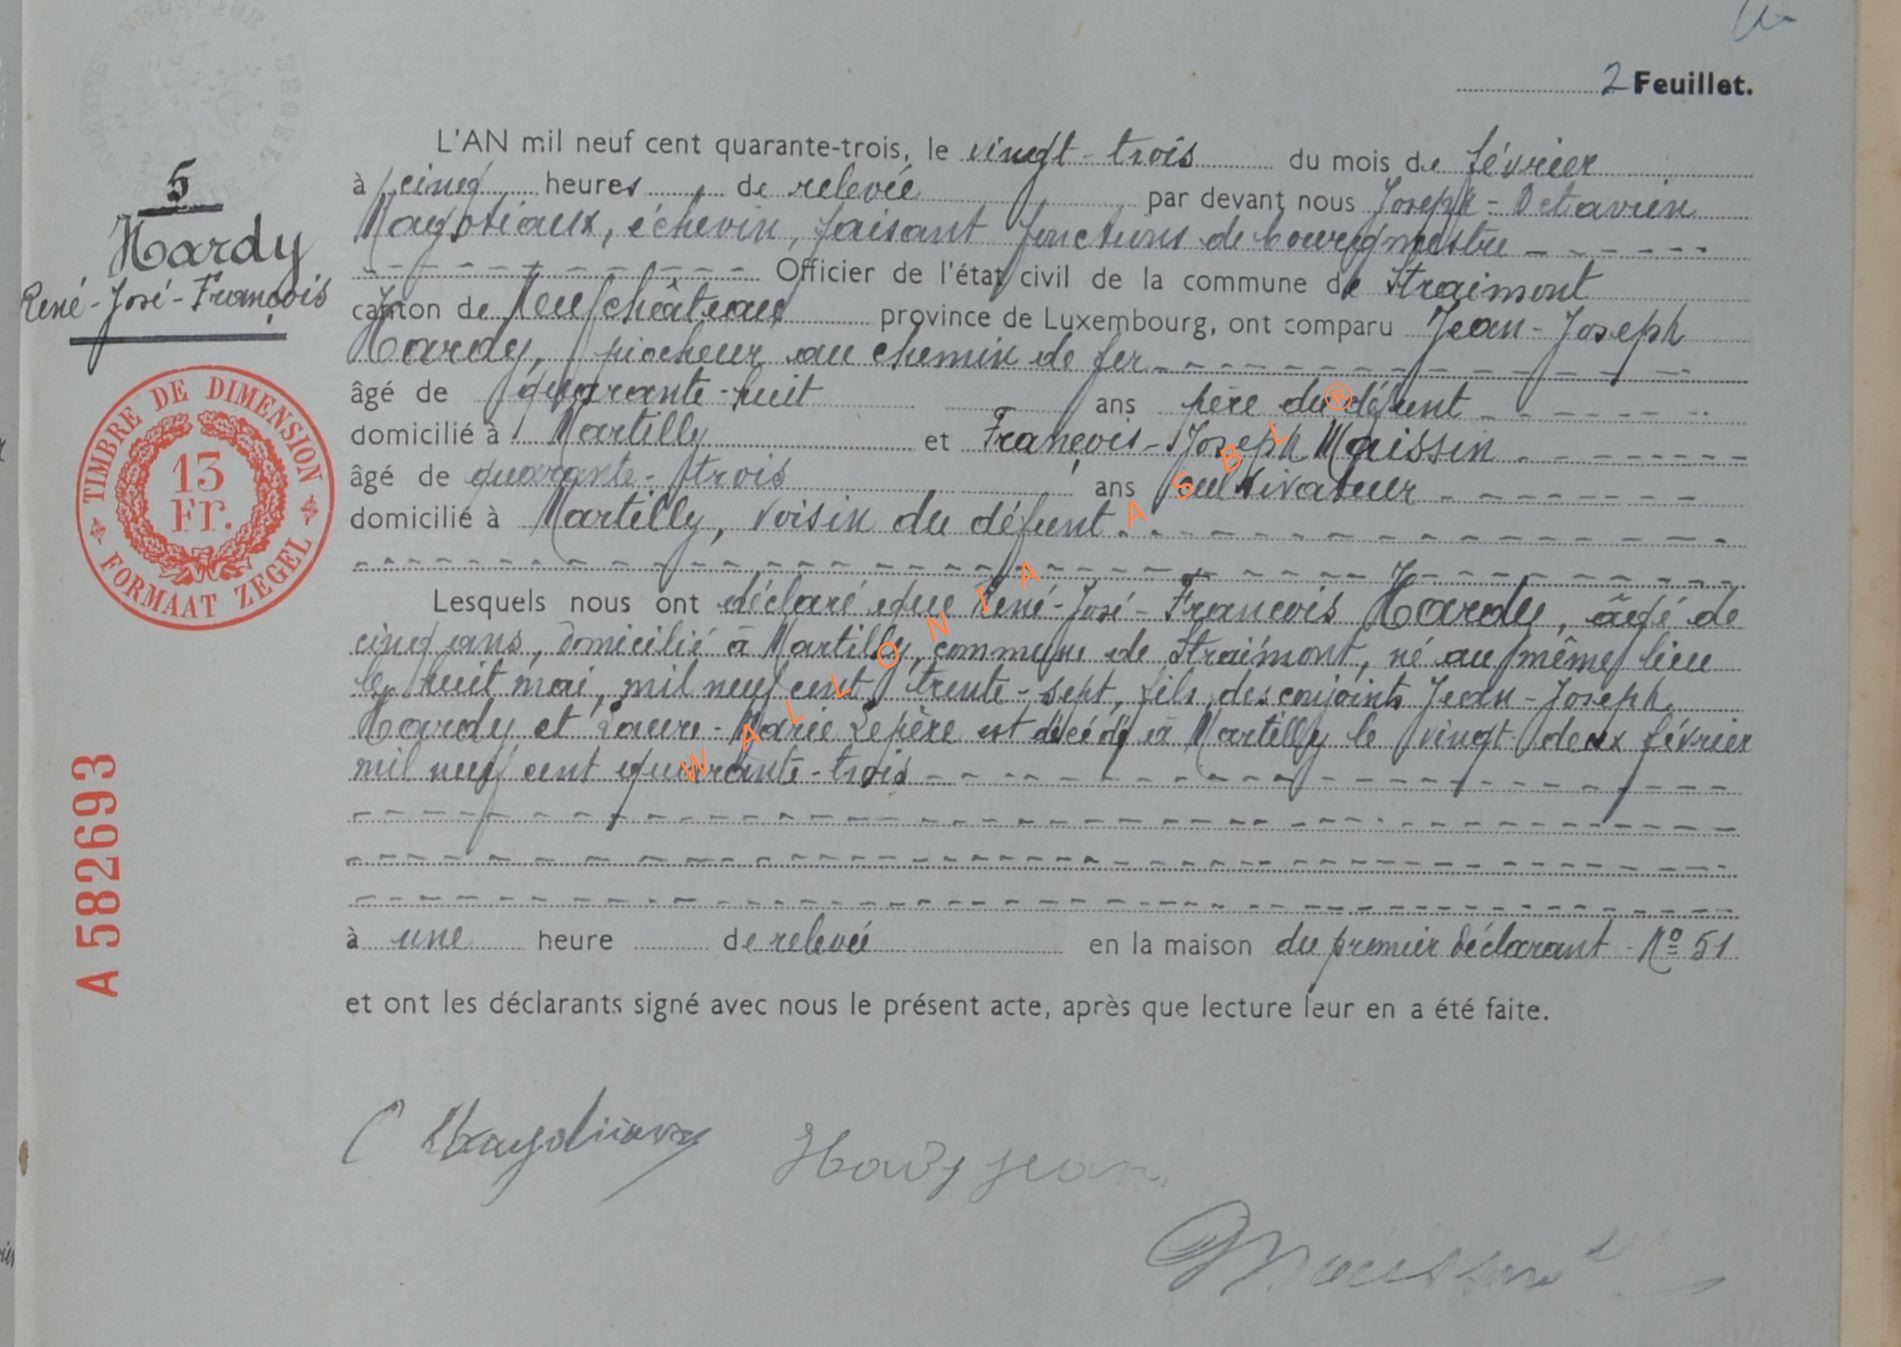 2 Feuillet.
L'AN mil neuf cent quarante-trois, le vingt-trois du mois de février
à cinq heures, de relevée par devant nous Joseph-Octavien
Magotiaux, échevin, faisant fonctions de bourgmestre
Officier de l'état civil de la commune de Straimont
canton de Neufchâteau province de Luxembourg, ont comparu Jean-Joseph
Hardy, piocheur au chemin de fer
âgé de quarante-huit ans père du défunt
domicilié à Martilly et François-Joseph Maissin
âgé de quarante-trois ans cultivateur
domicilié à Martilly, voisin du défunt.
Lesquels nous ont déclaré que René-José-François Hardy, âgé de
cinq ans, domicilié à Martilly, commune de Straimont, né au même lieu
le huit mai, mil neuf cent trente-sept, fils des conjoints Jean-Joseph
Hardy et Laure-Marie Lepère est décédé à Martilly le vingt-deux février
mil neuf cent quarante-trois
à une heure de relevée en la maison du premier déclarant - Nº 51
et ont les déclarants signé avec nous le présent acte, après que lecture leur en a été faite.
Hardy Jean
Maissin
5
Hardy
René-José-François
TIMBRE DE DIMENSION
13
Fr.
FORMAAT ZEGEL
A 582693
WALLONIA ASBL ®